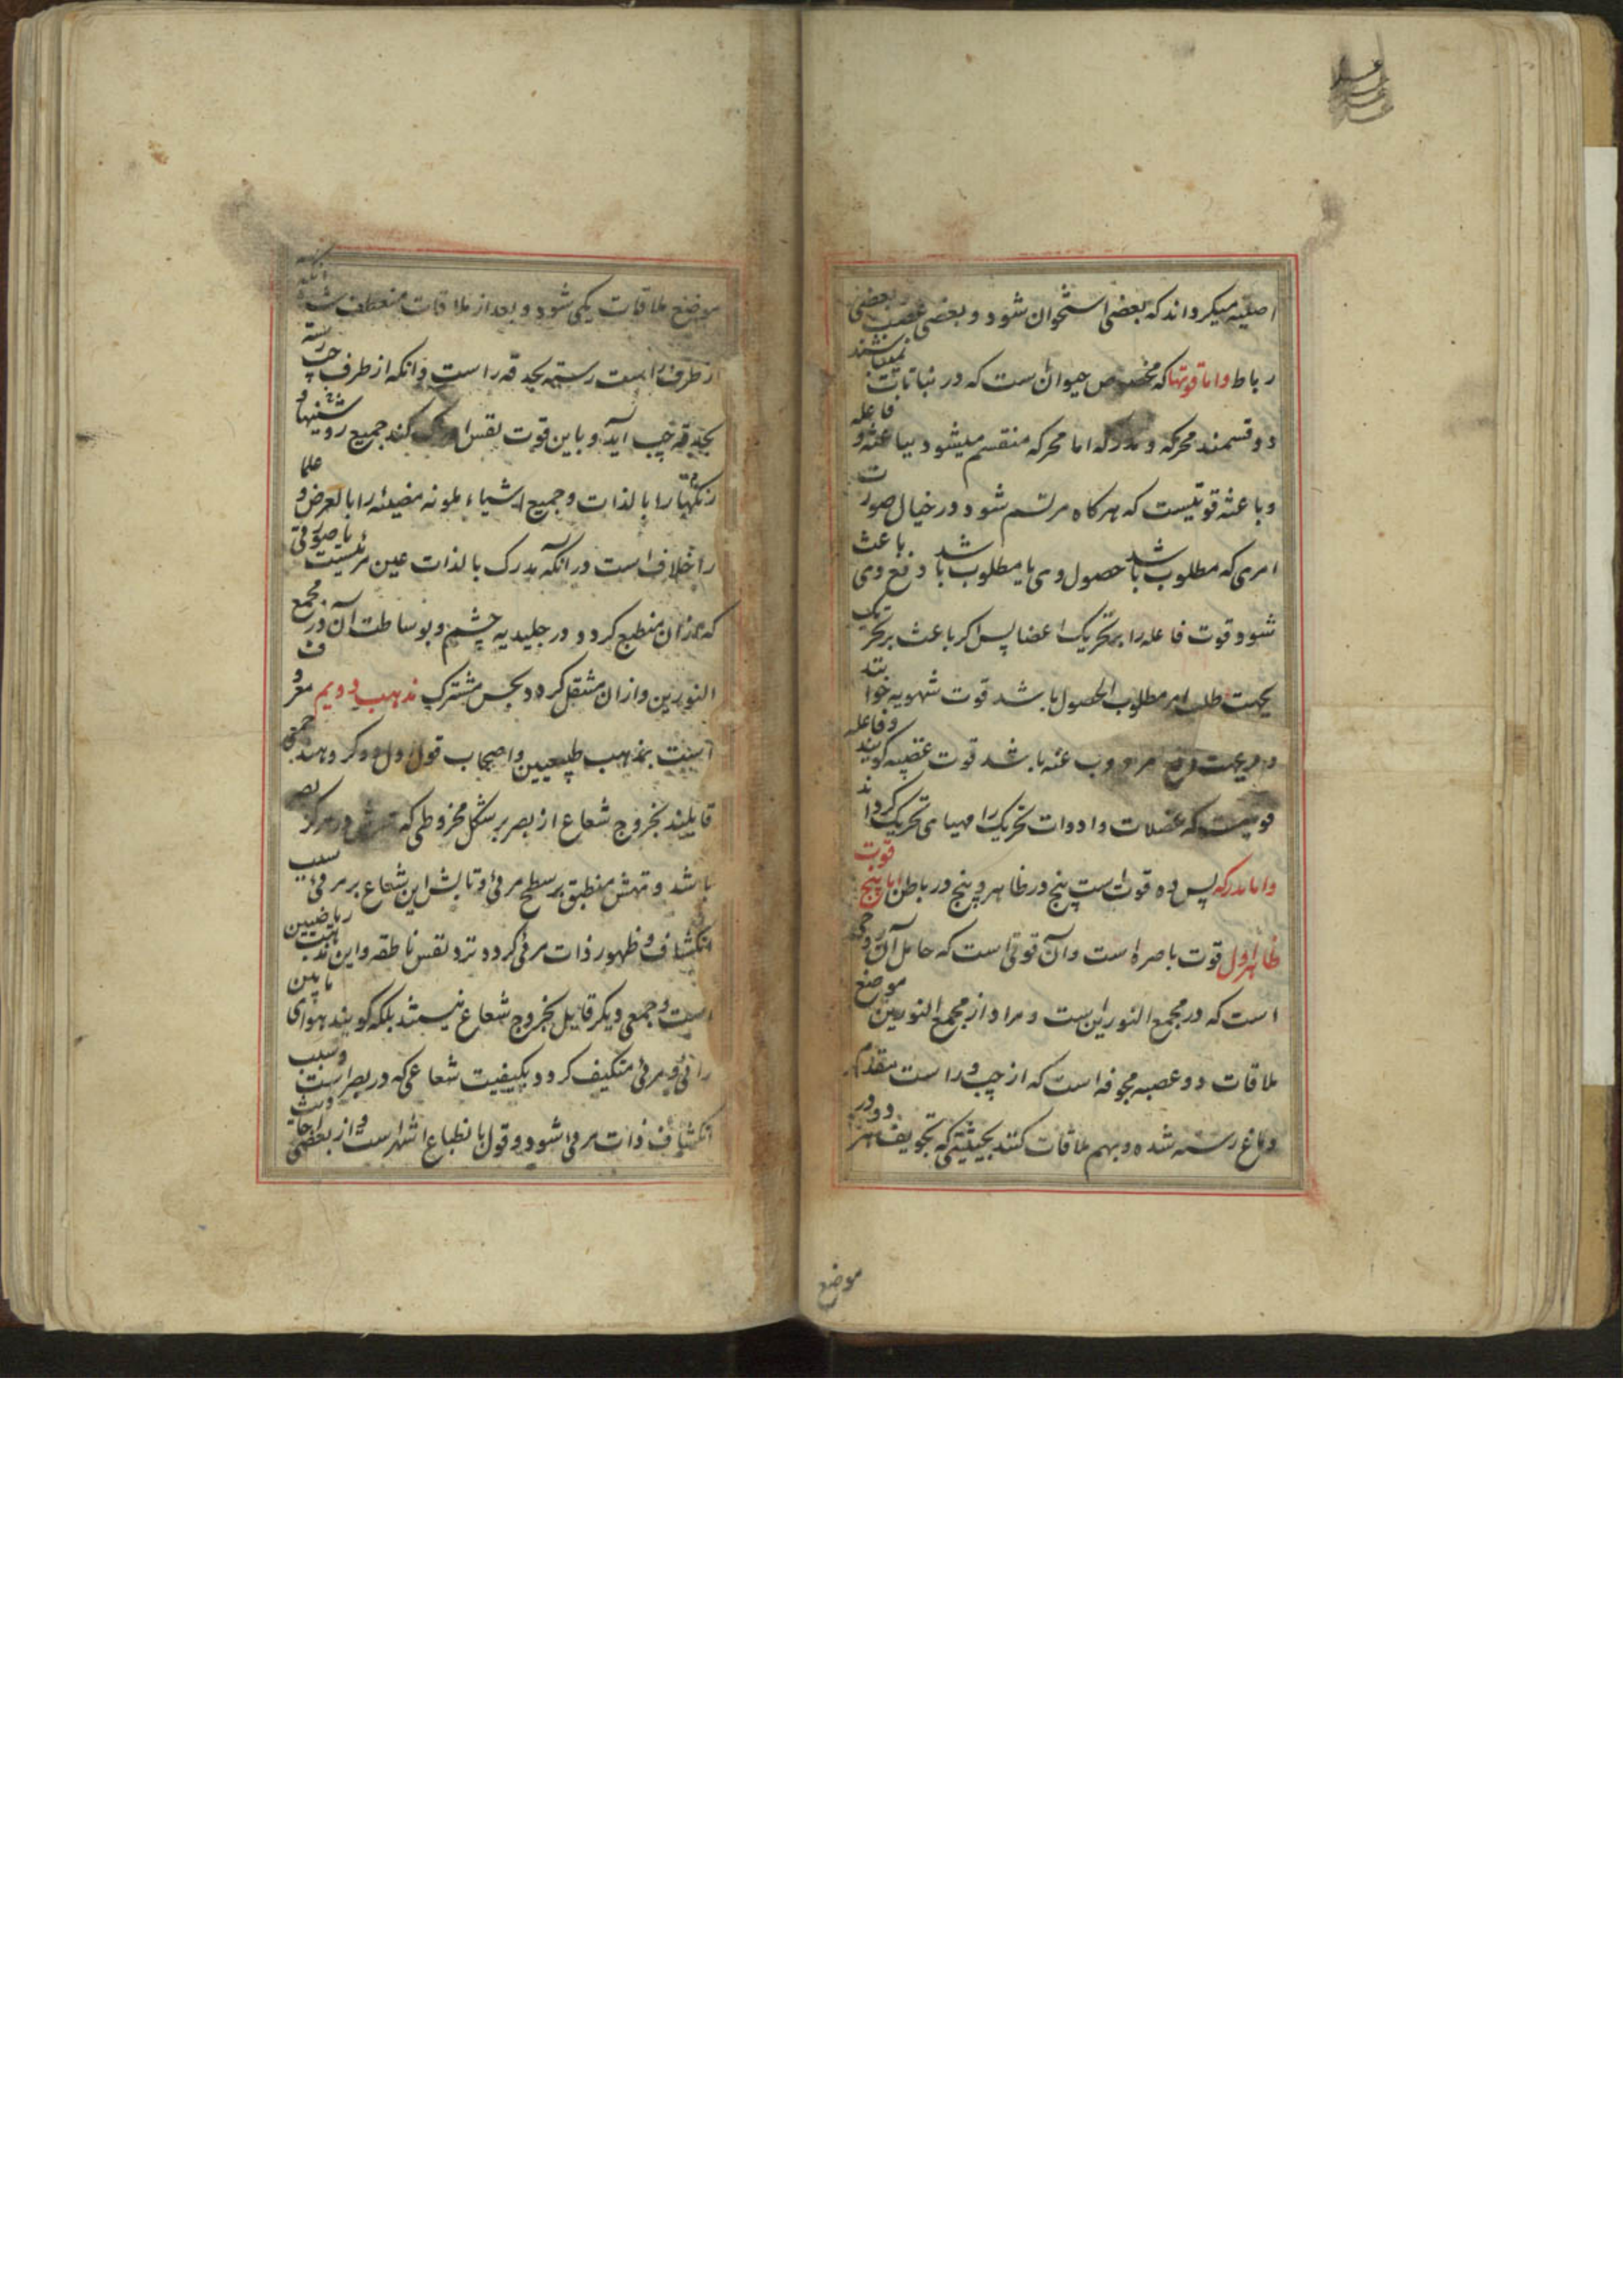 اصلیه میکرواند که بعضی استخوان شود و بعضی عصب و بعضی
رباط واما قوتها که مخصوص حیوان ست که در نباتات نمیباشند
دو قسمند محرکه و مدرکه اما محرکه منقسم میشود بباعثه و فاعله
وباعثه قوتیست که هرکاه مرتسم شود در خیال صورت
امری که مطلوب باشد حصول وی یا مطلوب باشد دفع وی باعث
شود قوت فاعله را بر تحریک اعضا پس اکر باعث بر تحریک
بجهت طلب امر مطلوب الحصول باشد قوت شهویه خوانند
باشد قوت غضبیه کویند وفاعله
قوتیست که عضلات وادوات تحریک را مهیای تحریک کرداند
واما مدرکه پس ده قوت است پنج در ظاهر و پنج در باطن اما پنج قوت
ظاهر اول قوت باصره است وآن قوتی است که حامل آن روحی
است که در مجمع النورین ست و مراد از مجمع النورین موضع
ملاقات دو عصبه مجوفه است که از چپ و راست مقدم
دماغ رسته شده و بهم ملاقات کنند بحیثیتی که تجویف هر دو در
موضع
موضع ملاقات یکی شود و بعد از ملاقات منعطف شده آنکه
از طرف راست رسته بحدقه راست وانکه از طرف چپ رسته
بحدقه چپ آید و باین قوت نفس کند جمیع روشنیها و
رنکها را بالذات وجمیع اشیاء ملونه مضیئه را بالعرض و علما
را خلاف است در آنکه مدرک بالذات عین مرئیست یا صورتی
که از آن منطبع کردد در جلیدیه چشم و بوساطت آن در مجمع
النورین وازان منتقل کردد بحس مشترک مذهب دویم معروف
آنست بمذهب طبیعیین واصحاب قول اول دو کروهند جمعی
قایلند بخروج شعاع از بصر بر شکل مخروطی که در مرکز بصر
باشد و تهش منطبق بر سطح مرئی و تابش این شعاع بر مرئی سبب
انکشاف و ظهور ذات مرئی کردد نزد نفس ناطقه واین مذهب ریاضیین
است و جمعی دیکر قایل بخروج شعاع نیستند بلکه کویند هوای مابین
رائی و مرئی متکیف کردد بکیفیت شعاعی که در بصر است و سبب
انکشاف ذات مرئی شود و قول بانطباع اشهر است و از بعضی احادیث